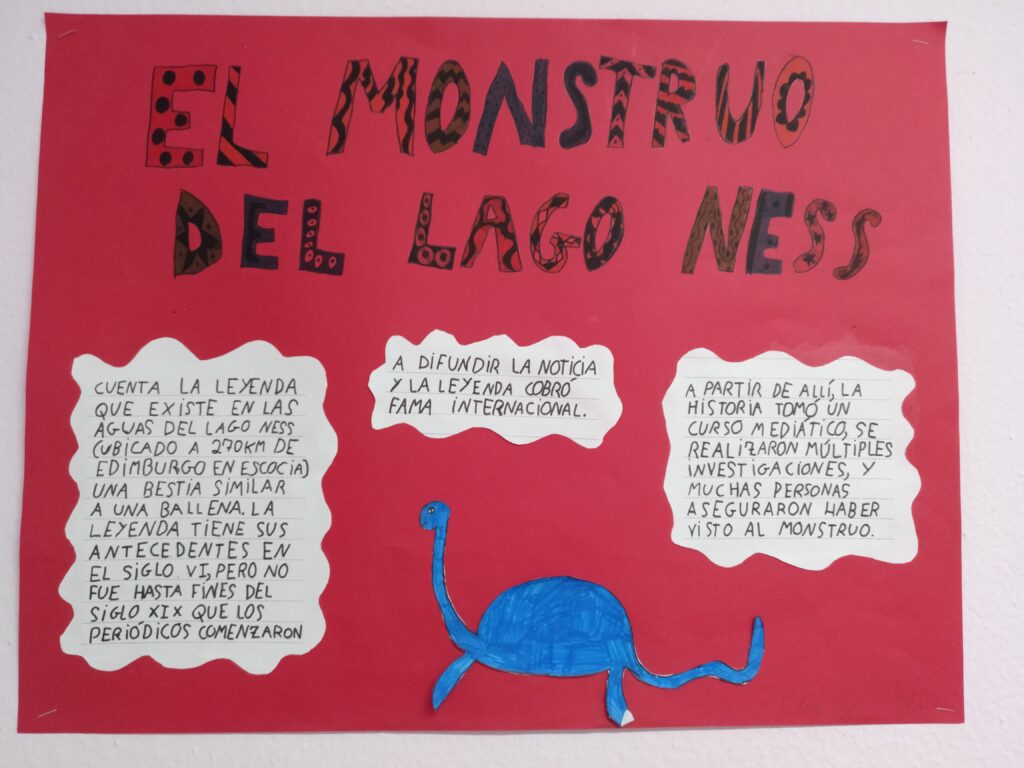 EL MONSTRUO
DEL LAGO NESS
CUENTA LA LEYENDA
QUE EXISTE EN LAS
AGUAS DEL LAGO NESS
(UBICADO A 270KM DE
EDIMBURGO EN ESCOCIA)
UNA BESTIA SIMILAR
A UNA BALLENA. LA
LEYENDA TIENE SUS
ANTECEDENTES EN
EL SIGLO VI, PERO NO
FUE HASTA FINES DEL
SIGLO XIX QUE LOS
PERIÓDICOS COMENZARON
A DIFUNDIR LA NOTICIA
Y LA LEYENDA COBRÓ
FAMA INTERNACIONAL.
A PARTIR DE ALLÍ, LA
HISTORIA TOMÓ UN
CURSO MEDIÁTICO, SE
REALIZARON MÚLTIPLES
INVESTIGACIONES, Y
MUCHAS PERSONAS
ASEGURARON HABER
VISTO AL MONSTRUO.